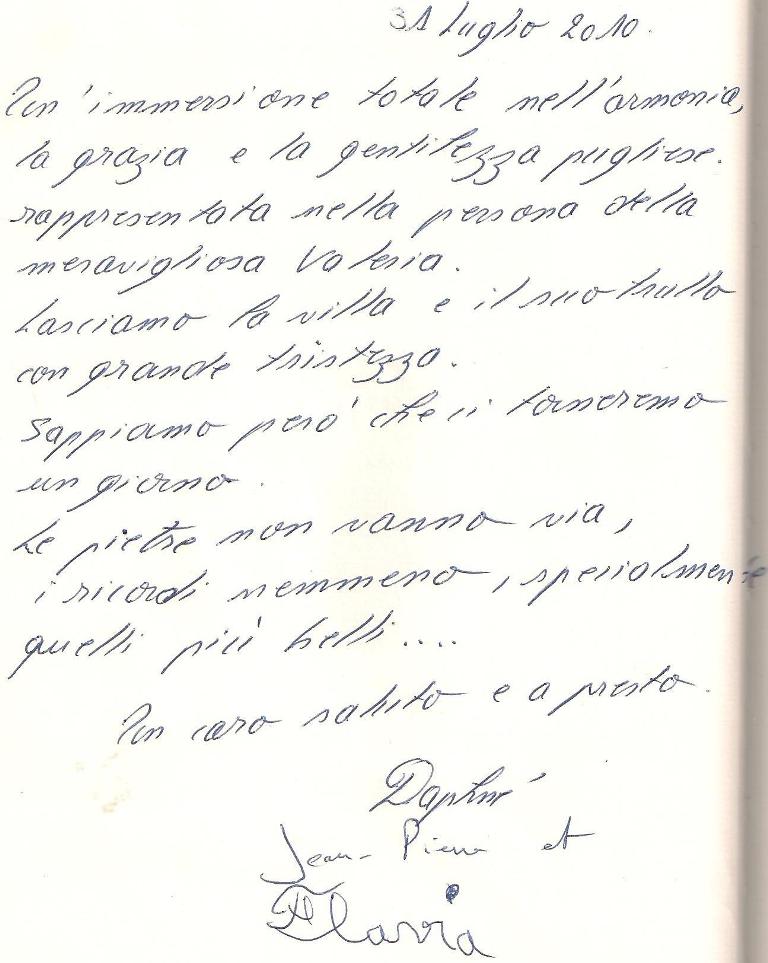 31 luglio 2010.
Un'immersione totale nell'armonia,
la grazia e la gentilezza pugliese.
rappresentata nella persona della
meravigliosa Valeria.
Lasciamo la villa e il suo trullo
con grande tristezza.
Sappiamo però che ci torneremo
un giorno.
Le pietre non vanno via,
i ricordi nemmeno, specialmente
quelli più belli....
Un caro saluto e a presto.
Daphné
Jean-Pierre et
Flavia